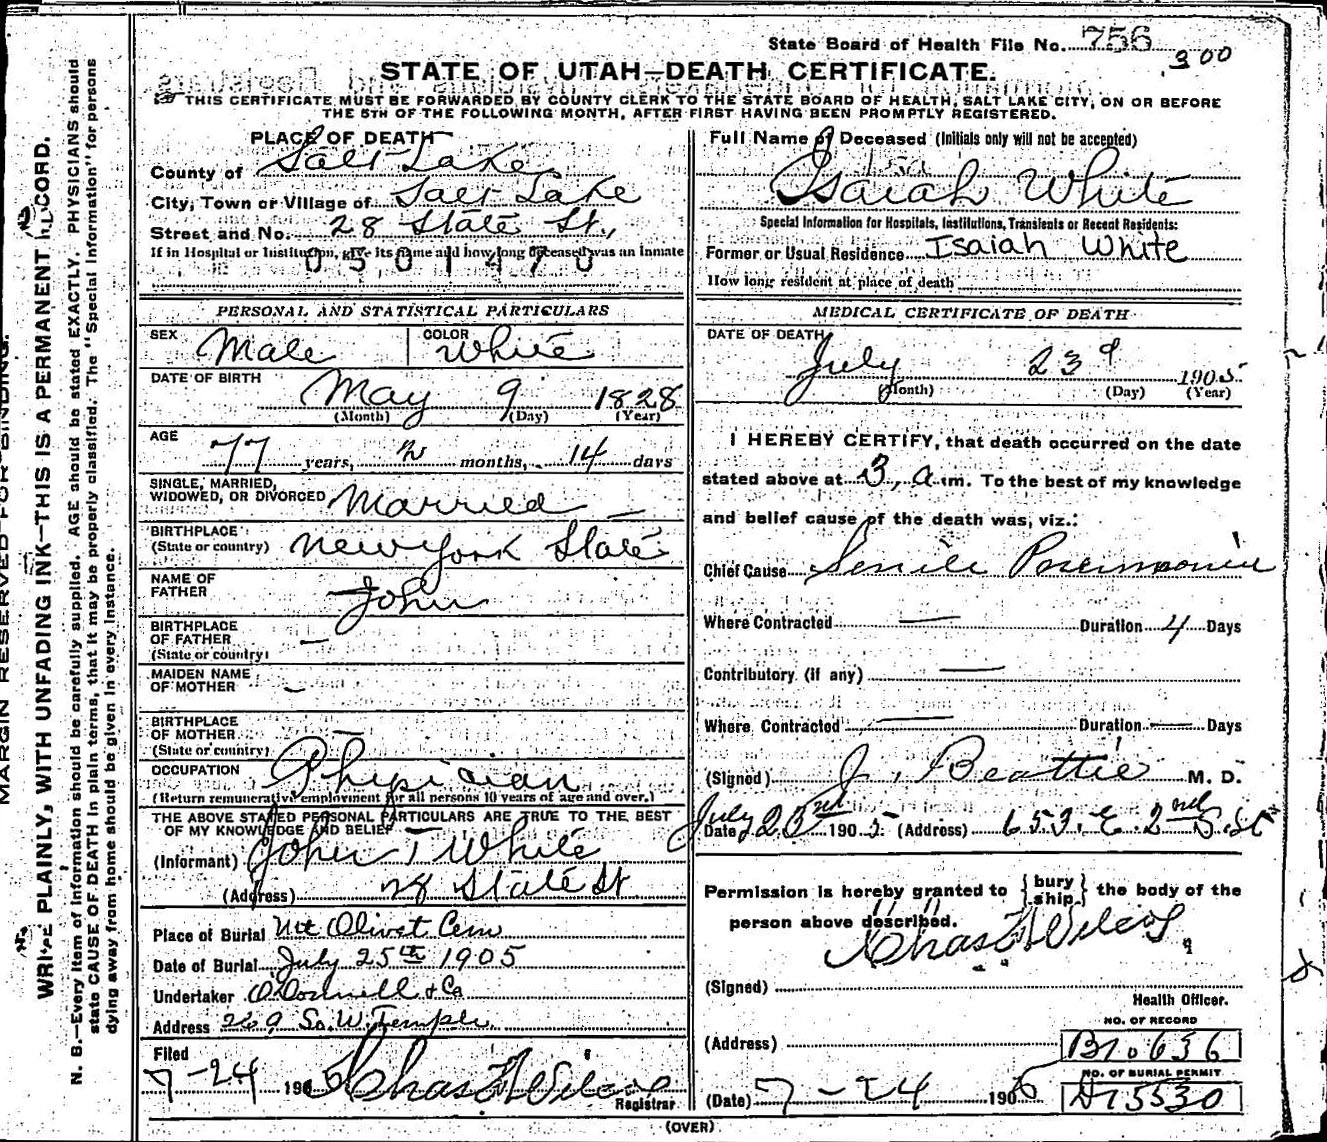 State Board of Health File No. 756
300
STATE OF UTAH—DEATH CERTIFICATE.
THIS CERTIFICATE MUST BE FORWARDED BY COUNTY CLERK TO THE STATE BOARD OF HEALTH, SALT LAKE CITY, ON OR BEFORE
THE 5TH OF THE FOLLOWING MONTH, AFTER FIRST HAVING BEEN PROMPTLY REGISTERED.
PLACE OF DEATH
County of Salt Lake
City, Town or Village of Salt Lake
Street and No. 28 State St.,
If in Hospital or Institution, give its name and how long deceased was an inmate
0501470
Full Name of Deceased (Initials only will not be accepted)
Isaiah White
Special Information for Hospitals, Institutions, Transients or Recent Residents:
Former or Usual Residence Isaiah White
How long resident at place of death
PERSONAL AND STATISTICAL PARTICULARS
SEX Male COLOR White
DATE OF BIRTH May 9 1828
(Month) (Day) (Year)
AGE 77 years, 2 months, 14 days
SINGLE, MARRIED,
WIDOWED, OR DIVORCED Married —
BIRTHPLACE
(State or country) New York State
NAME OF
FATHER John
BIRTHPLACE
OF FATHER —
(State or country)
MAIDEN NAME
OF MOTHER —
BIRTHPLACE
OF MOTHER —
(State or country)
OCCUPATION Physician
(Return remunerative employment for all persons 10 years of age and over.)
THE ABOVE STATED PERSONAL PARTICULARS ARE TRUE TO THE BEST
OF MY KNOWLEDGE AND BELIEF
(Informant) John T White
(Address) 28 State St
Place of Burial Mt Olivet Cem
Date of Burial July 25th 1905
Undertaker O'Donnell & Co
Address 269 So. W. Temple
Filed
7-24 1905 Chas F Wilcox
Registrar
MEDICAL CERTIFICATE OF DEATH
DATE OF DEATH
July 23d 1905
(Month) (Day) (Year)
I HEREBY CERTIFY, that death occurred on the date
stated above at 3, a.m. To the best of my knowledge
and belief cause of the death was, viz.:
Chief Cause Senile Pneumonia
Where Contracted — Duration 4 Days
Contributory (if any) —
Where Contracted — Duration — Days
(Signed) J. Beattie M. D.
Date July 23rd 1905 (Address) 653. E. 2nd S. St
Permission is hereby granted to {bury
ship} the body of the
person above described.
Chas F Wilcox
(Signed)
Health Officer.
NO. OF RECORD
(Address) B No 636
NO. OF BURIAL PERMIT
(Date) 7-24 1905 D 15530
(OVER)
MARGIN RESERVED FOR BINDING.
WRITE PLAINLY, WITH UNFADING INK—THIS IS A PERMANENT RECORD.
N. B.—Every item of information should be carefully supplied. AGE should be stated EXACTLY. PHYSICIANS should
state CAUSE OF DEATH in plain terms, that it may be properly classified. The "Special Information" for persons
dying away from home should be given in every instance.